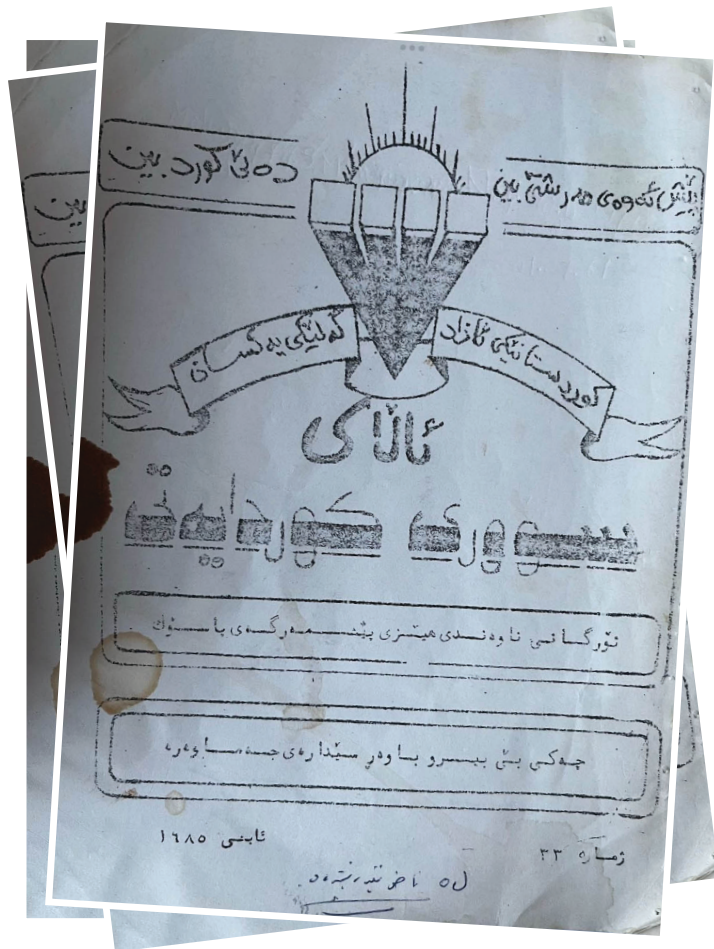 پێش ئەوەی هەر شتێ بین
دەبێ کورد بین
کوردستانێکی ئازاد
گەلێکی یەکسان
ئاڵای
سووری کوردایەتی
ئۆرگانی ناوەندی هێزی پێشمەرگەی پاسۆک
چەکی بێ بیروباوەر سێدارەی جەماوەرە
ژمارە ٣٣
ئابنی ١٦٨٥
بین